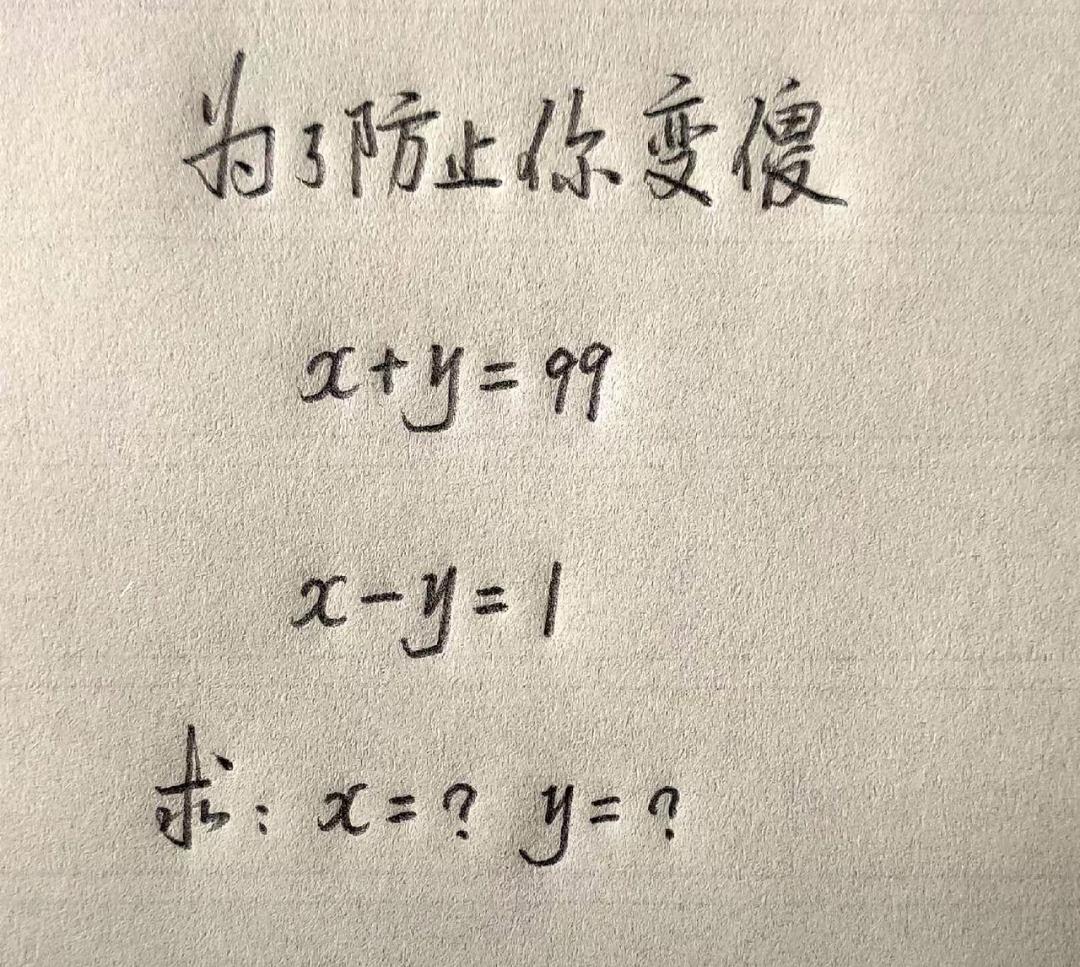 为了防止你变傻
x+y=99
x-y=1
求：x=？ y=？